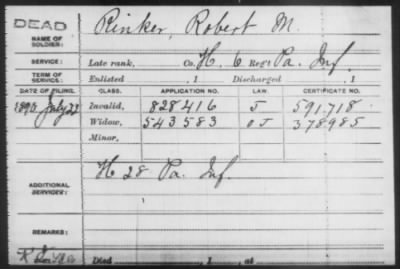 DEAD
NAME OF SOLDIER: Rinker, Robert M.
SERVICE: Late rank, Co. H. 6 Reg't Pa. Inf.
TERM OF SERVICE: Enlisted , 1 Discharged , 1
DATE OF FILING. CLASS. APPLICATION NO. LAW. CERTIFICATE NO.
1890 July 22 Invalid, 828416 J 591.718.
Widow, 543583 O J 378985
Minor,
ADDITIONAL SERVICES: H 28 Pa. Inf.
REMARKS:
Died , 1 , at